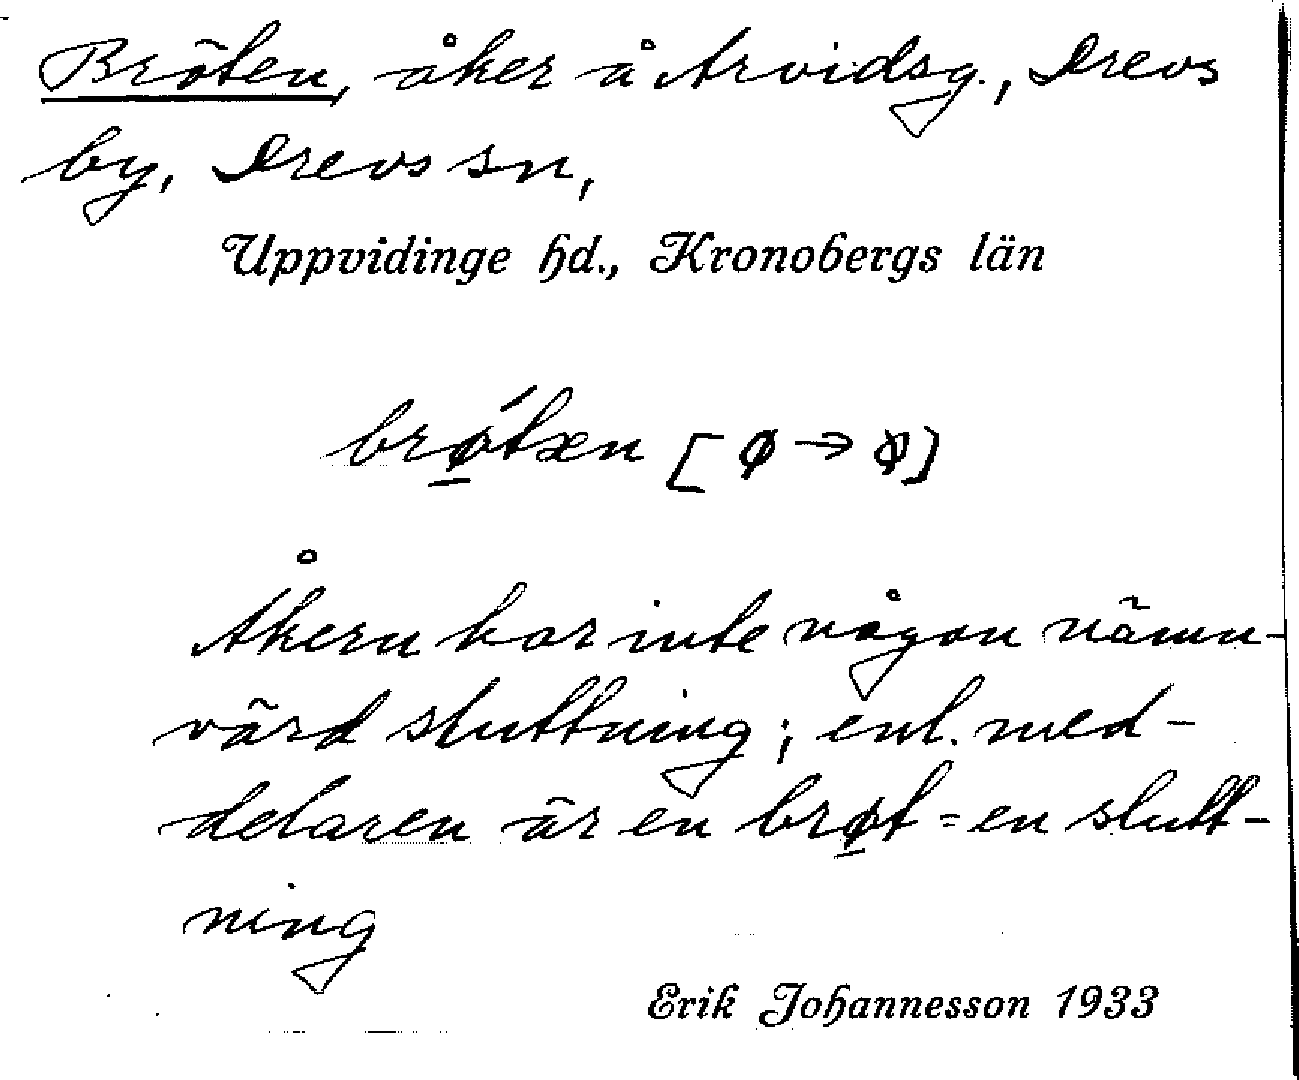 Bröten, åker å Arvidsg., Drevs
by, Drevs sn,
Uppvidinge hd., Kronobergs län
brǿ̲tæn [ø → ø̣]
Åkern har inte någon nämn-
värd sluttning; enl. med-
delaren är en brø̲t = en slutt-
ning
Erik Johannesson 1933